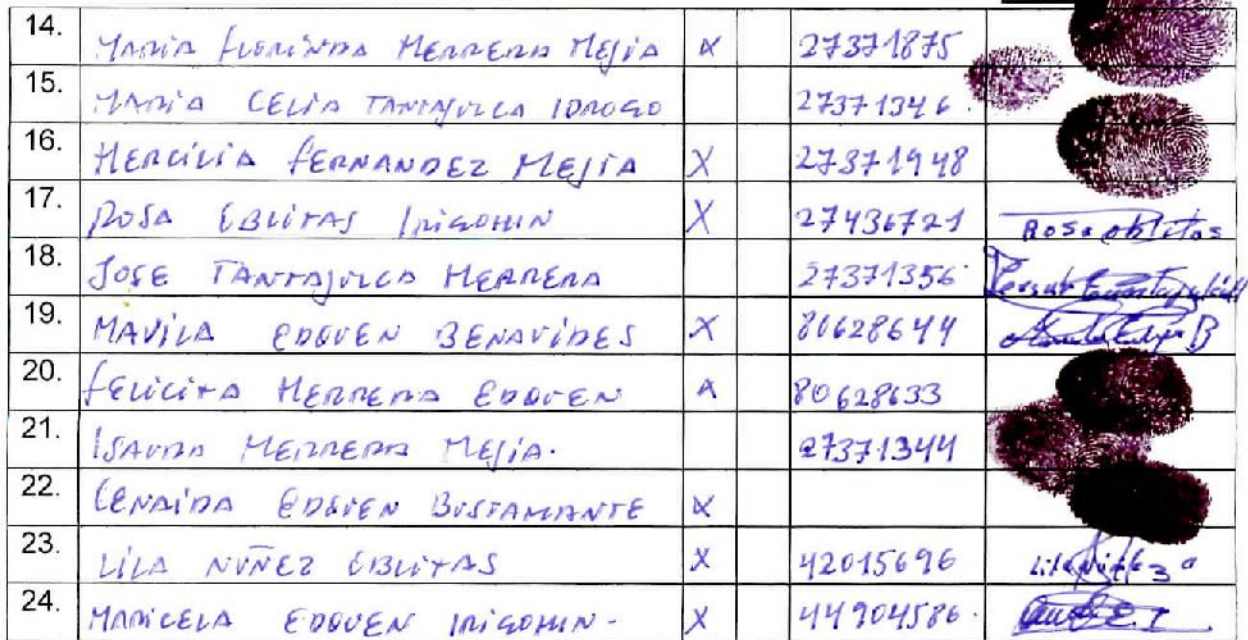 14. MARIA FLORINDA HERRERA MEJIA X 27371875
15. MARIA CELIA TANTAJULCA IDROGO 27371346.
16. HERCILIA FERNANDEZ MEJIA X 27371948
17. ROSA OBLITAS IRIGOHIN X 27436721 Rosa oblitas
18. JOSE TANTAJULCA HERRERA 27371356.
19. MAVILA EDQUEN BENAVIDES X 80628644
20. FELICITA HERRERA EDQUEN X 80628633
21. ISAURA HERRERA MEJIA. 27371344
22. CENAIDA EDQUEN BUSTAMANTE X
23. LILA NUÑEZ OBLITAS X 42015696
24. MARICELA EDQUEN IRIGOHIN- X 44904586.